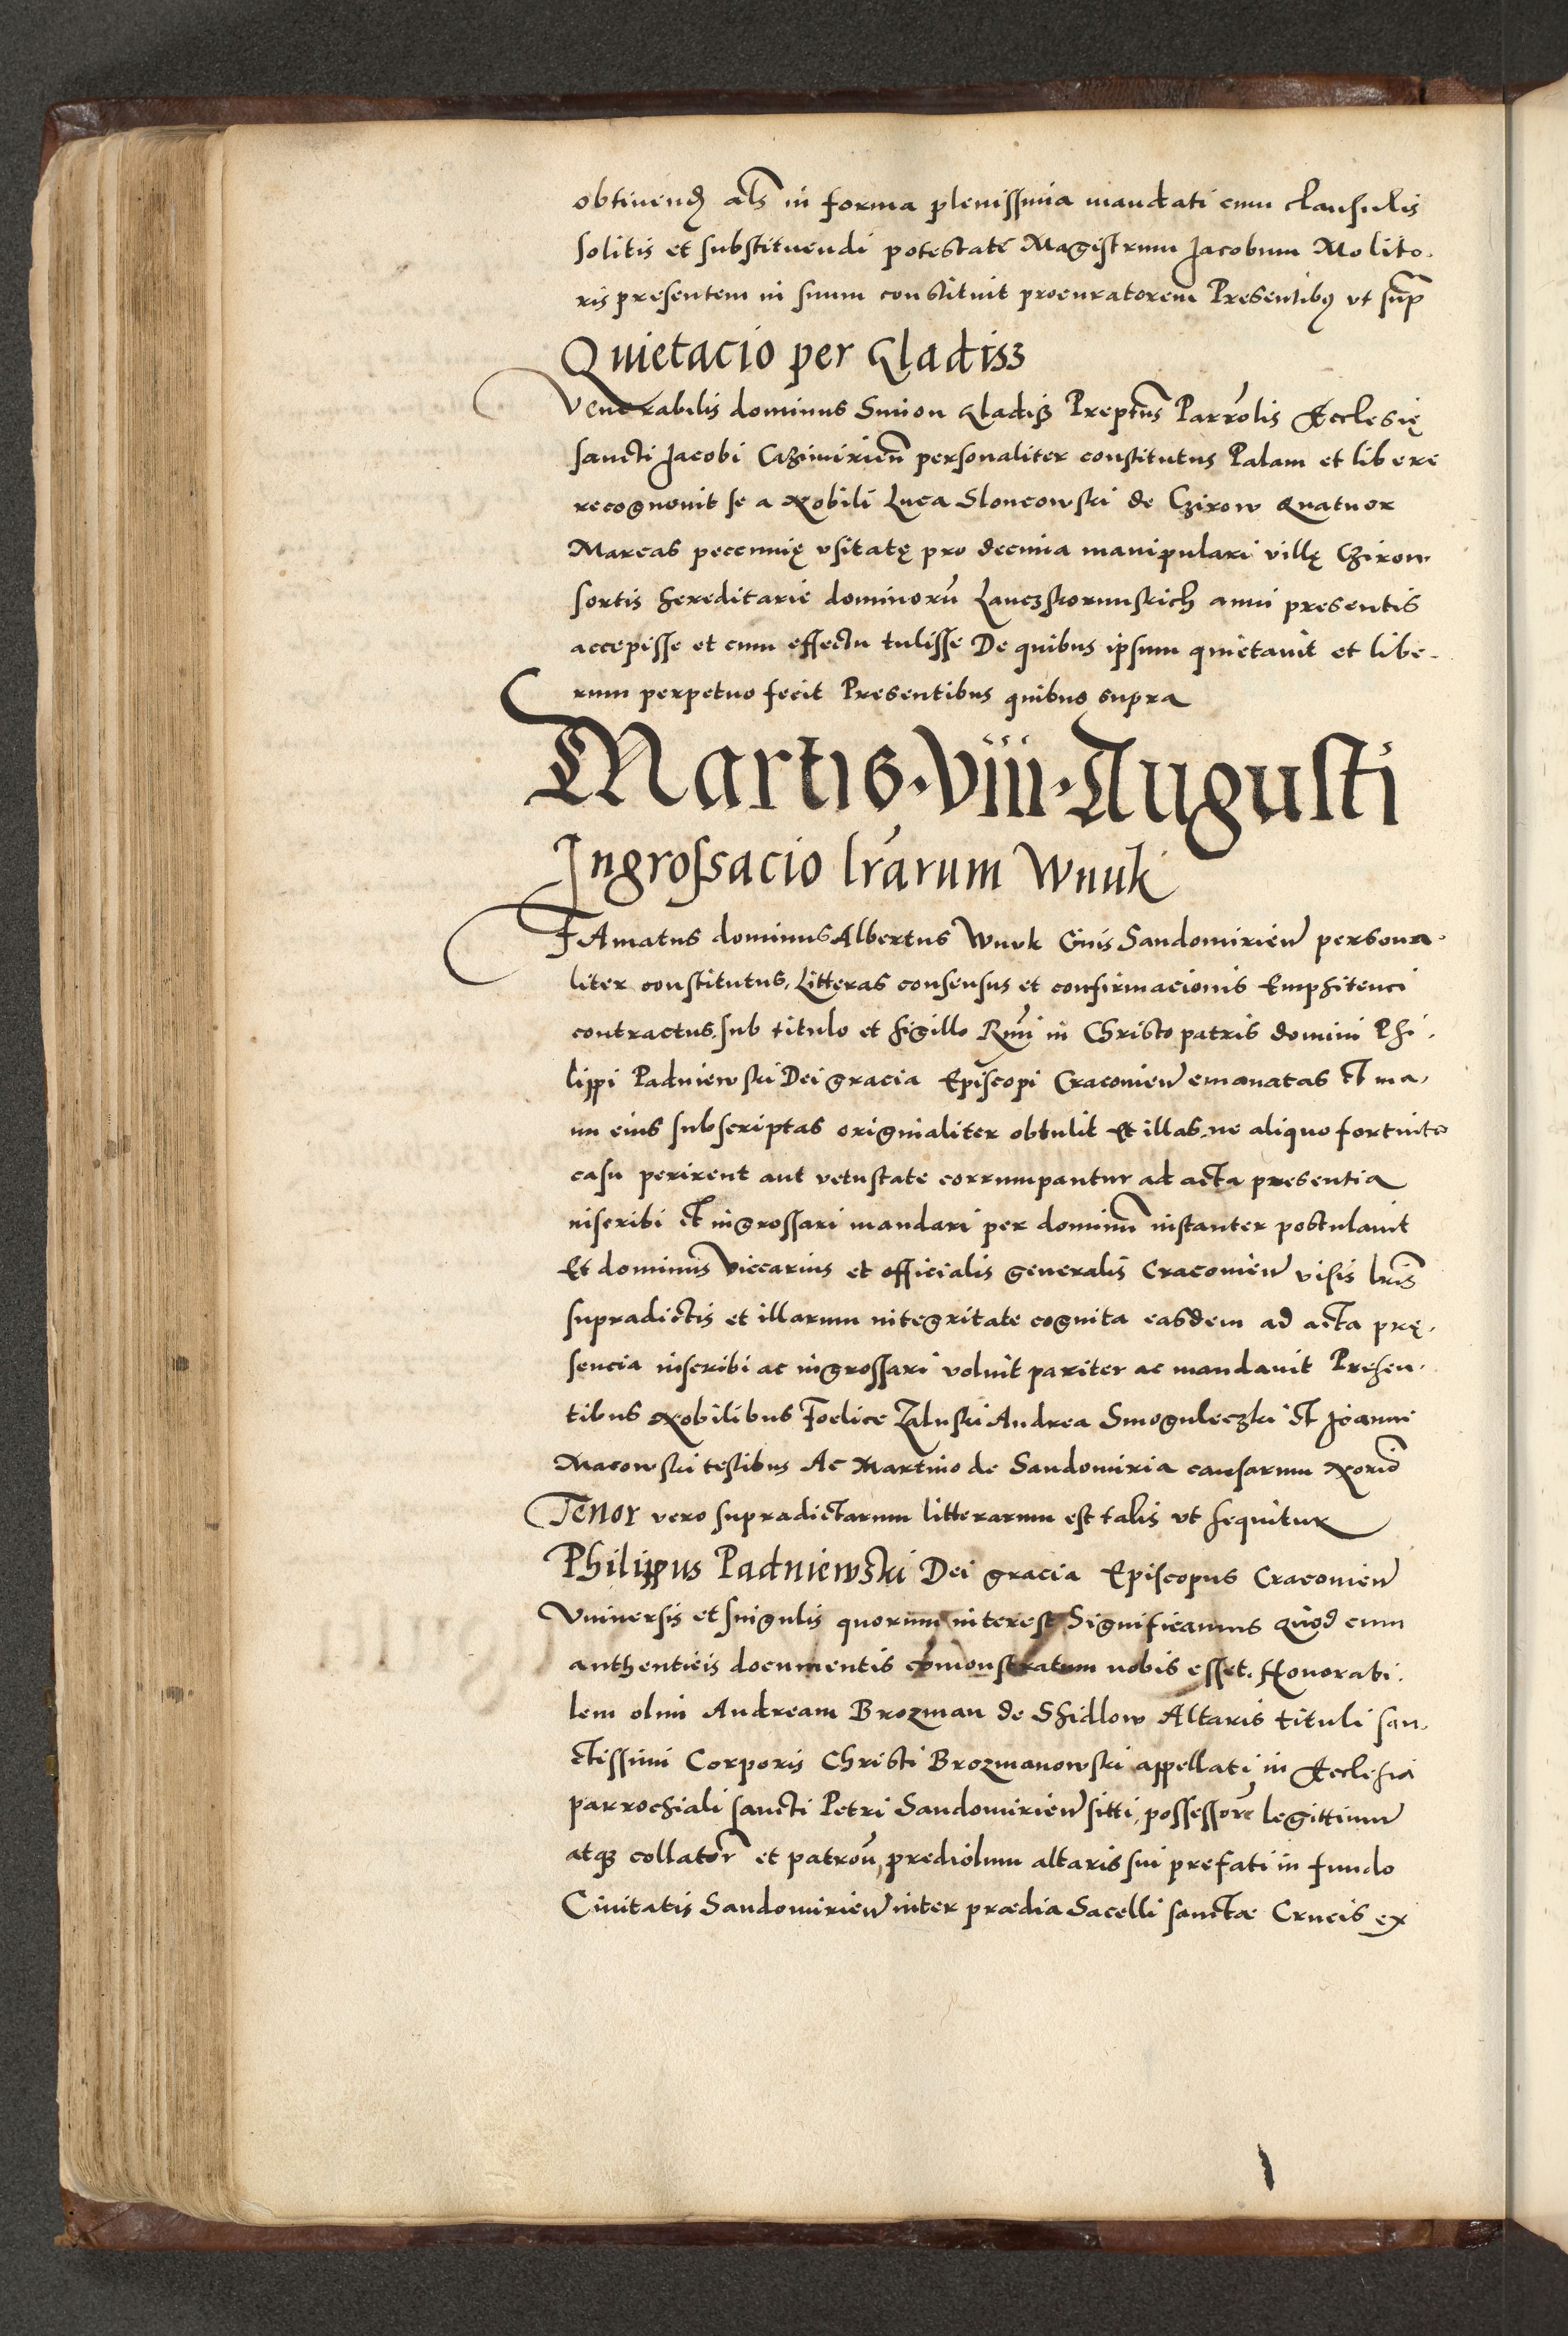 obtinend als in forma plenissima mandati cum clausulis
solitis et substituendi potestate Magistrum Jacobum Molito.
ris presentem in suum constituit procuratorem Presentibus vt sup
Quietacio per Gladisz
Venerabilis dominus Simon Gladisz Preptus Parrolis Ecclesię
sancti Jacobi Cazimirien personaliter constitutus Palam et libere
recognouit se a Nobili Luca Sloncowski de Czirow Quatuor
Marcas pecunnię vsitatę pro decima manipulari villę Czirow
sortis hereditarie dominorū Lanczkorunskich anni presentis
accepisse et cum effectu tulisse De quibus ipsum quietauit et libe-
rum perpetuo fecit Presentibus quibus supra
Martis · viii · Augusti
Ingrossacio lrarum Wnuk
FAmatus dominus Albertus Wnuk Ciuis Sandomirien persona.
liter constitutus, Litteras consensus et confirmacionis Emphiteuci
contractus, sub titulo et sigillo Rmi in Christo patris domini Phi.
lippi Padniewski Dei gracia Episcopi Cracouien emanatas et ma.
nu eius subscriptas originaliter obtulit Et illas, ne aliquo fortuito
casu perirent aut vetustate corrumpantur ad acta presentia
inscribi et ingrossari mandari per dominum instanter postulauit
Et dominus Viccarius et officialis generalis Cracouien visis lris
supradictis et illarum integritate cognita easdem ad acta prę.
sencia inscribi ac ingrossari voluit pariter ac mandauit Presen.
tibus Nobilibus Foelice Zaluski Andrea Smoguleczki et Joanne
Macowski testibus Ac Martino de Sandomiria causarum Norio
Tenor vero supradictarum litterarum est talis vt sequitur
Philippus Padniewski Dei gracia Episcopus Cracouien
Vniuersis et singulis quorum interest Significamus Quod cum
anthenticis documentis comonstratum nobis esset, Honorabi.
lem olim Andream Brozman de Shidlow Altaris tituli san.
ctissimi Corporis Christi Brozmanowski appellati in Ecclesia
parrochiali sancti Petri Sandomirien sitti, possessore legittimum
atque collator et patronū, prediolum altaris sui prefati in fundo
Ciuitatis Sandomirien inter prædia Sacelli sanctæ Crucis ex